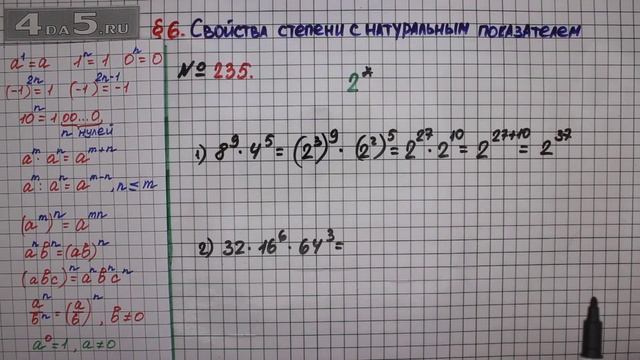 4DA5.RU
§ 6. Свойства степени с натуральным показателем
№ 235.
2^x
a¹ = a 1ⁿ = 1 0ⁿ = 0
(-1)²ⁿ = 1 (-1)²ⁿ⁻¹ = -1
10ⁿ = 1 00...0,
n нулей
aᵐ · aⁿ = aᵐ⁺ⁿ
aᵐ : aⁿ = aᵐ⁻ⁿ, n ≤ m
(aᵐ)ⁿ = aᵐⁿ
aⁿbⁿ = (ab)ⁿ
(abc)ⁿ = aⁿbⁿcⁿ
aⁿ/bⁿ = (a/b)ⁿ, b ≠ 0
a⁰ = 1, a ≠ 0
1) 8⁹ · 4⁵ = (2³)⁹ · (2²)⁵ = 2²⁷ · 2¹⁰ = 2²⁷⁺¹⁰ = 2³⁷
2) 32 · 16⁶ · 64³ =